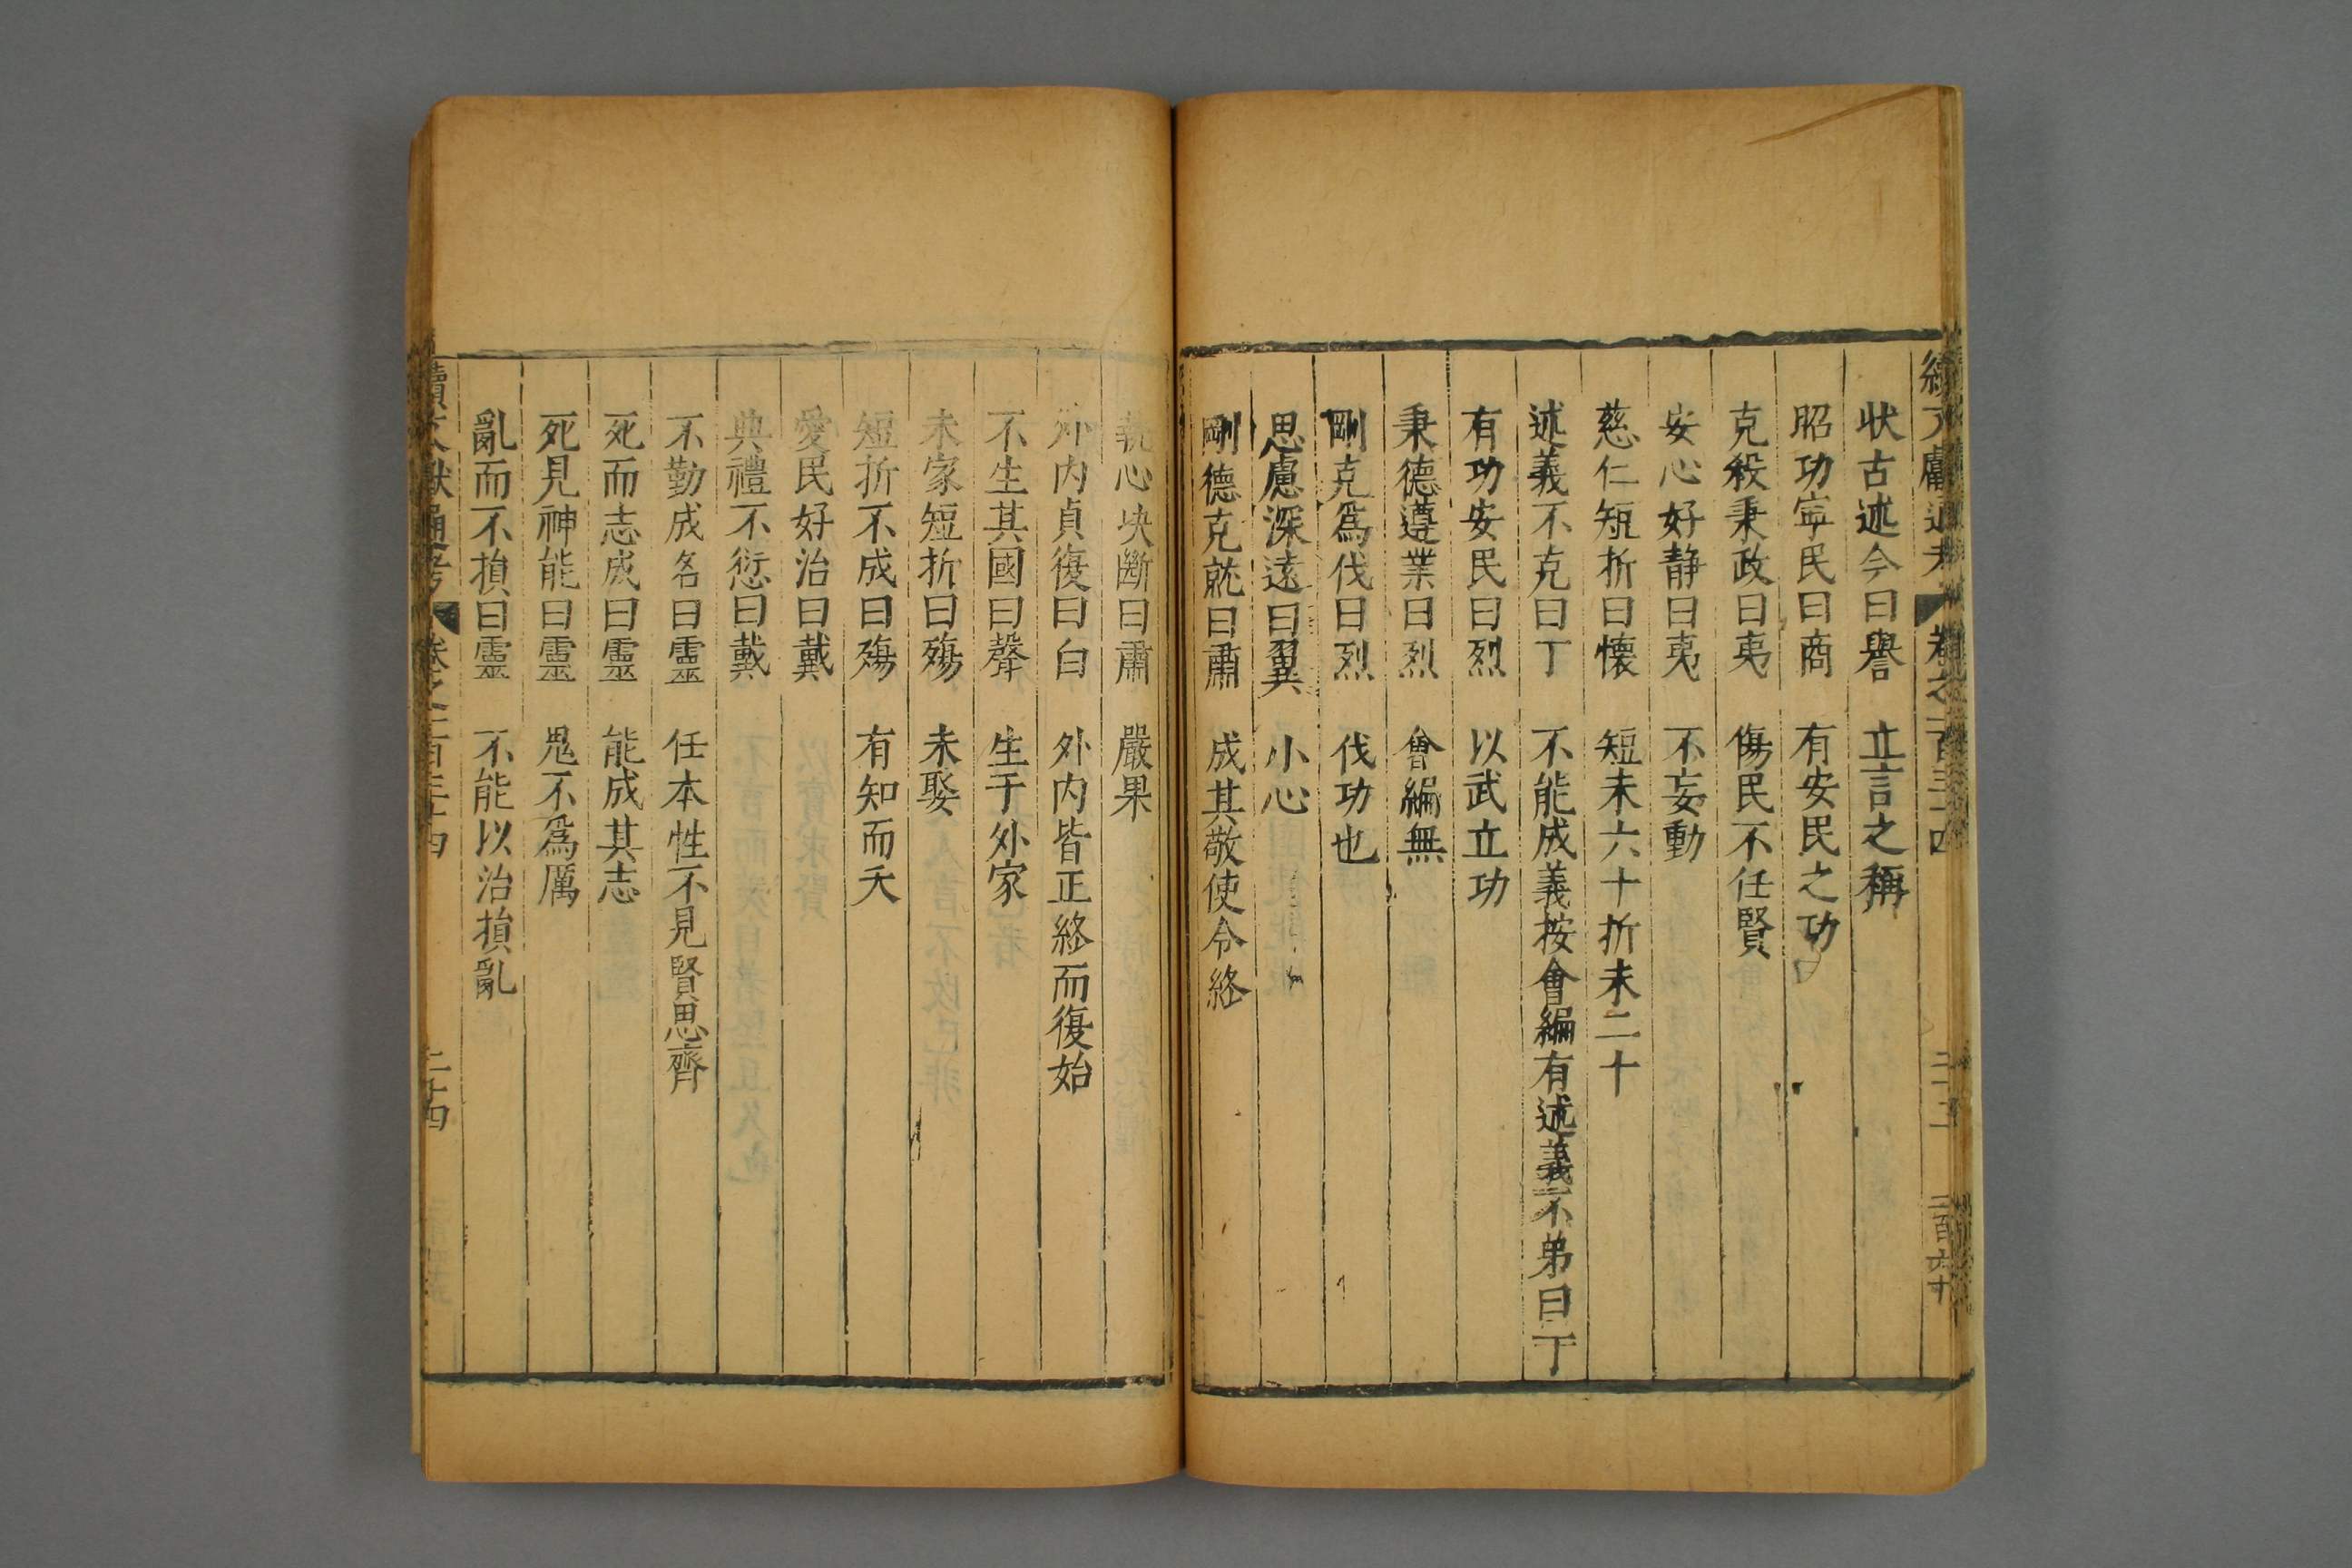 續文獻通考 卷之一百三十四 二十三 二百六十
狀古述今曰譽 立言之稱
昭功寧民曰商 有安民之功
克殺秉政曰夷 傷民不任賢
安心好静曰夷 不妄動
慈仁短折曰懷 短未六十折未二十
述義不克曰丁 不能成義按會編有述義不弟曰丁
有功安民曰烈 以武立功
秉德遵業曰烈 會編無
剛克爲伐曰烈 伐功也
思慮深遠曰翼 小心
剛德克就曰肅 成其敬使令終
執心决斷曰肅 嚴果
外内貞復曰白 外内皆正終而復始
不生其國曰聲 生于外家
未家短折曰殤 未娶
短折不成曰殤 有知而夭
愛民好治曰戴
典禮不愆曰戴
不勤成名曰靈 任本性不見賢思齊
死而志成曰靈 能成其志
死見神能曰靈 鬼不爲厲
亂而不損曰靈 不能以治損亂
續文獻通考 卷之一百三十四 二十四